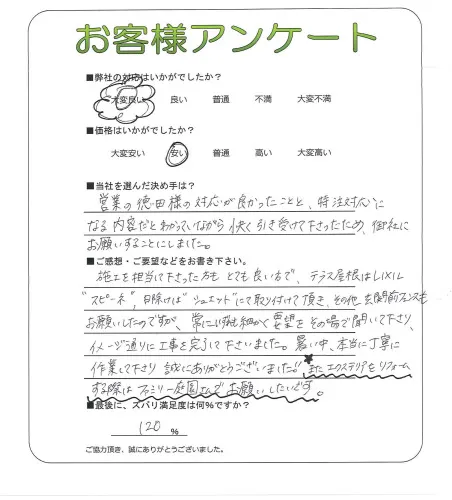 お客様アンケート
■弊社の対応はいかがでしたか?
大変良い 良い 普通 不満 大変不満
■価格はいかがでしたか?
大変安い 安い 普通 高い 大変高い
■当社を選んだ決め手は?
営業の徳田様の対応が良かったことと、特注対応に
なる内容だとわかっていながら快く引き受けて下さったため、御社に
お願いすることにしました。
■ご感想・ご要望などをお書き下さい。
施工を担当して下さった方も とても良い方で、テラス屋根はLIXIL
"スピーネ"、日除けは"シュエット"にて取り付けて頂き、その他玄関前フェンスも
お願いしたのですが、常に 細かく要望をその場で聞いて下さり、
イメージ通りに工事を完了して下さいました。暑い中、本当に丁寧に
作業して下さり誠にありがとうございました!! またエクステリアをリフォーム
する際はファミリー庭園さんでお願いしたいです。
■最後に、ズバリ満足度は何%ですか?
120 %
ご協力頂き、誠にありがとうございました。